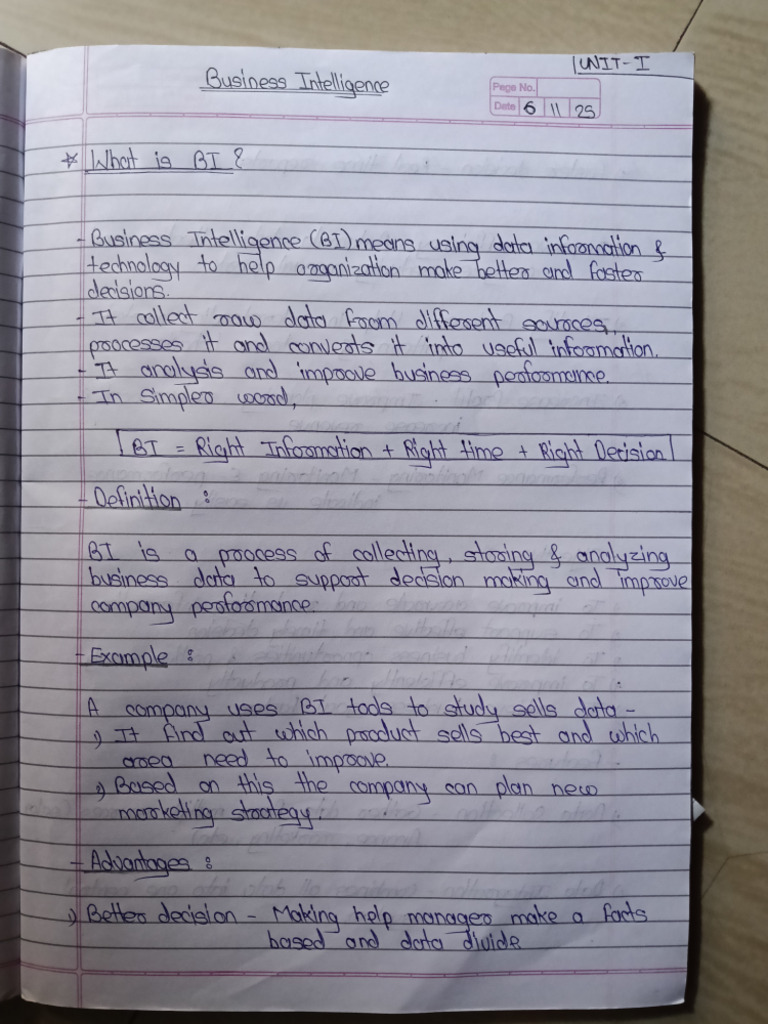 UNIT-I
Business Intelligence
Page No.
Date 6 11 25
* What is BI ?
- Business Intelligence (BI) means using data information &
technology to help organization make better and faster
decisions.
- It collect raw data from different sources,
processes it and converts it into useful information.
- It analysis and improve business performance.
- In Simpler word,
BI = Right Information + Right time + Right Decision
- Definition :
BI is a process of collecting, storing & analyzing
business data to support decision making and improve
company performance.
- Example :
A company uses BI tools to study sells data -
1) It find out which product sells best and which
area need to improve.
2) Based on this the company can plan new
marketing strategy.
- Advantages :
1) Better decision - Making help manager make a facts
based and data divide